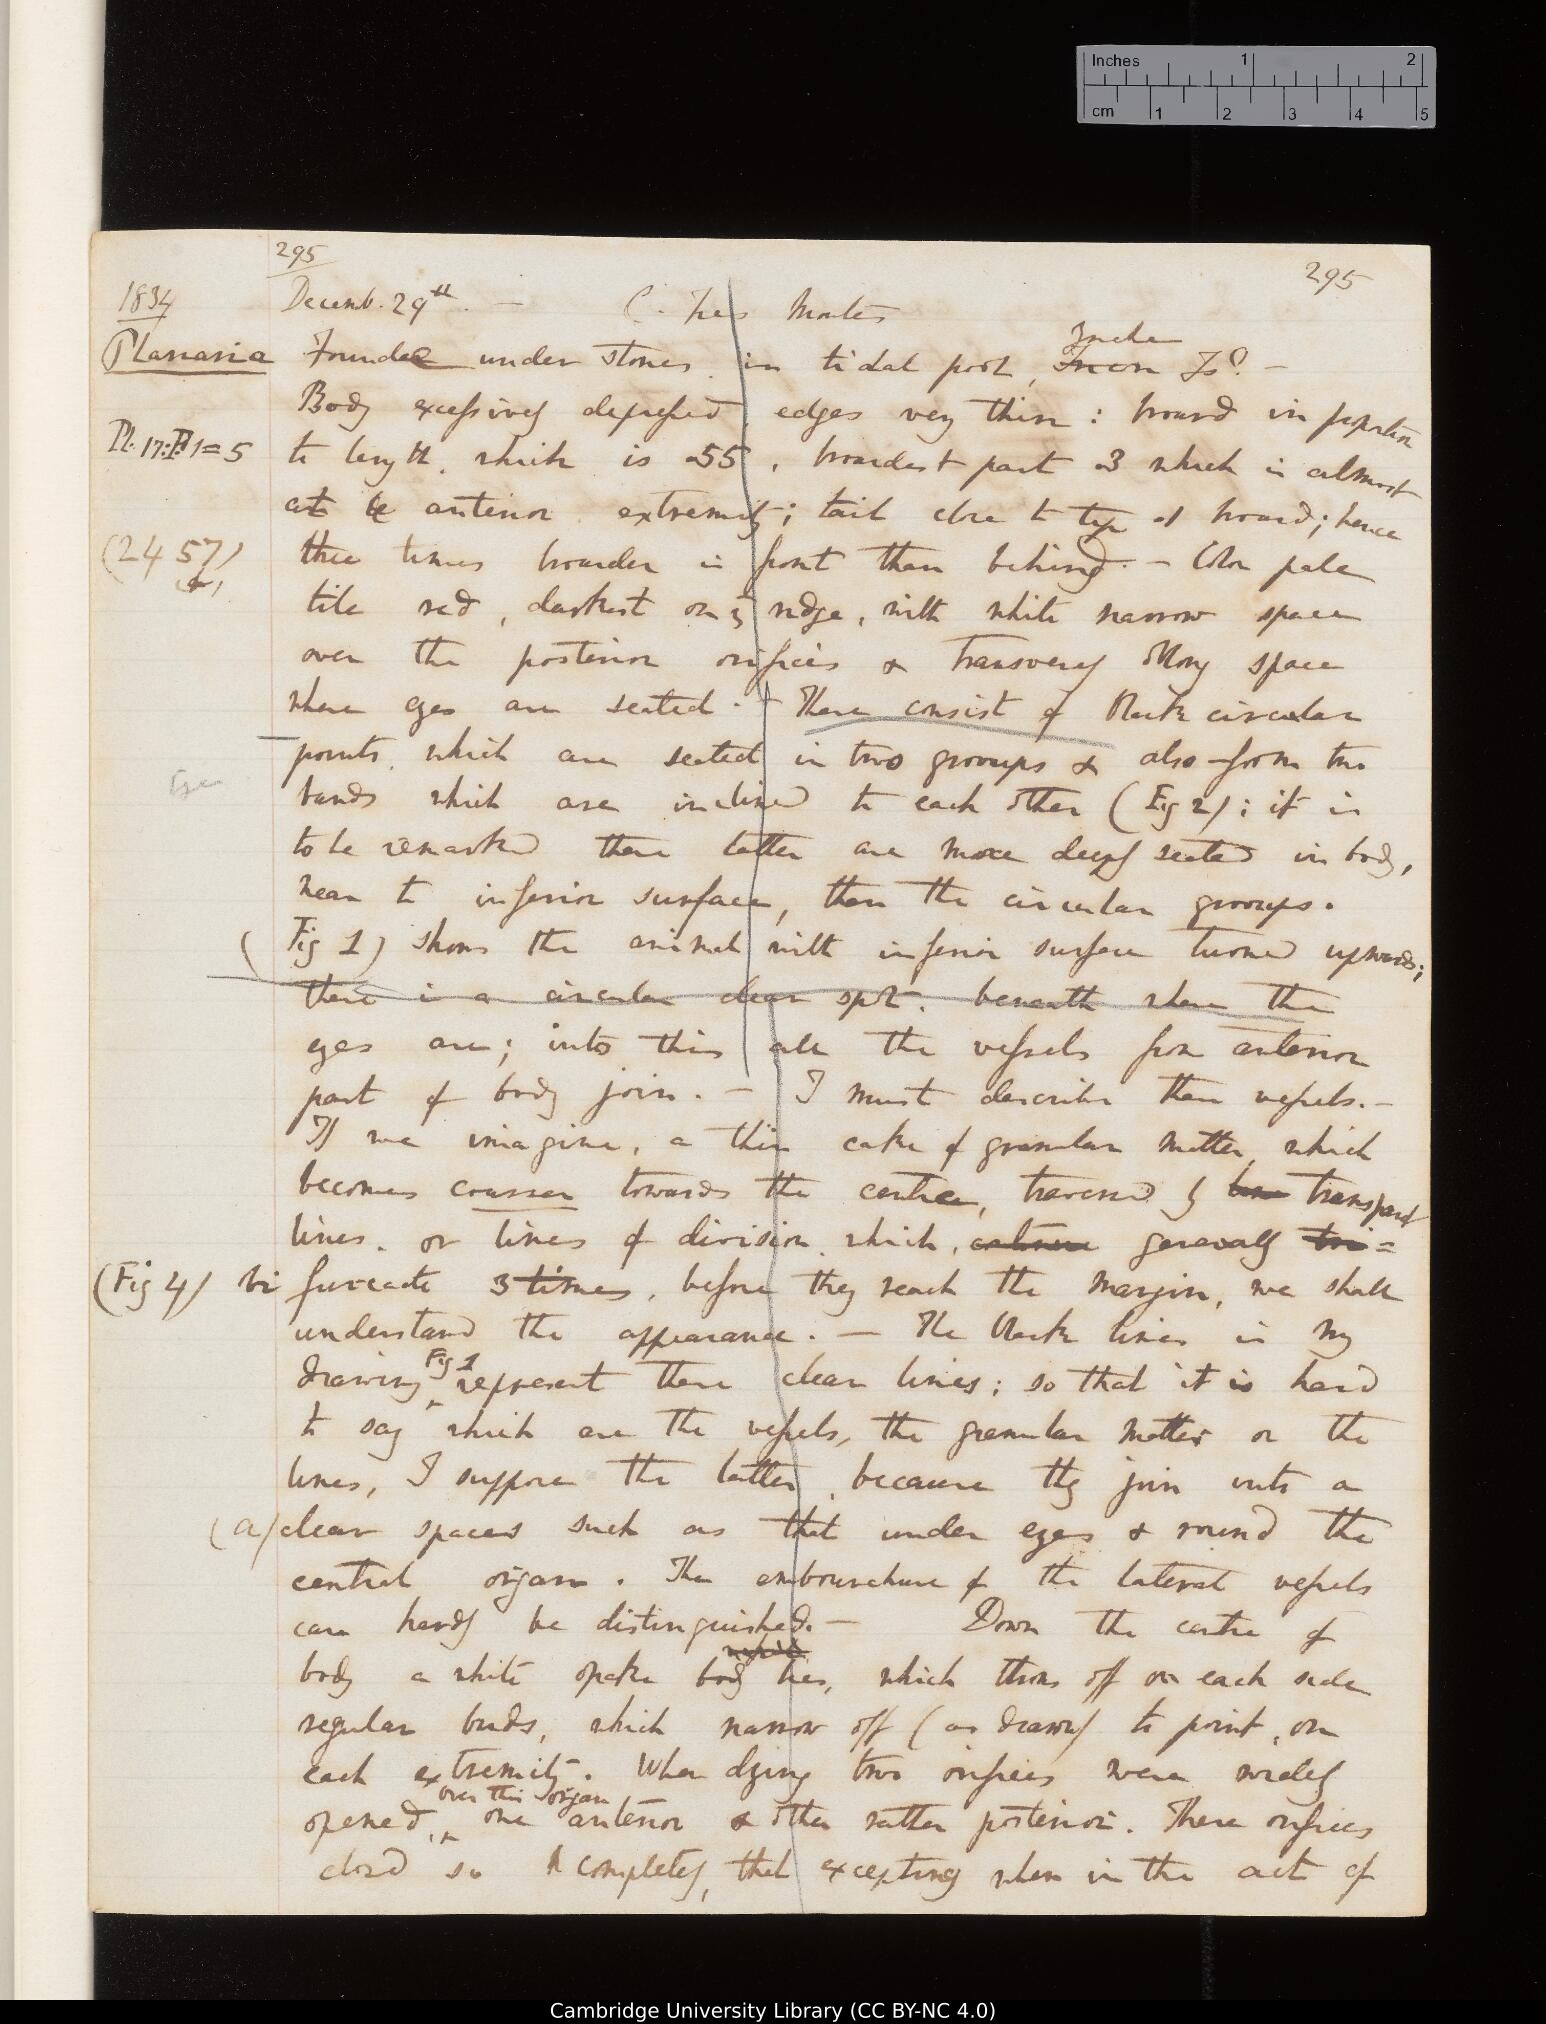 Inches 1 2
cm 1 2 3 4 5
295
295
1834
Decemb. 29th. — C. Tres Montes
Planaria
Inche
Founded under stones in tidal pool, Incon Is? —
Body excessively depressed, edges very thin: broard in proportion
Pl. 17: F 1=5
to length, which is .55, broardest part .3 which is almost
at anterior extremity; tail close to tip .1 broard; hence
(2457)
three times broarder in front than behind. — Color pale
tile red, darkest on ridge, with white narrow space
over the posterior orifices & transversely oblong space
where eyes are seated. These consist of black circular
points, which are seated in two groups & also form two
Eyes
bands which are inclined to each other (Fig 2); it is
to be remarked these latter are more deeply seated in body,
near to inferior surface, than the circular groups.
(Fig 1) shows the animal with inferior surface turned upwards;
there is a circular clear spot. beneath where the
eyes are; into this all the vessels from anterior
part of body join. — I must describe these vessels. —
If we imagine, a thin cake of granular matter, which
becomes coarser towards the centre, traversed by transparent
lines. or lines of division, which, generally tri=
(Fig 4) bi furcate 3 times, before they reach the margin, we shall
understand the appearance. — The black lines in my
Fig 1
drawing represent these clear lines; so that it is hard
to say which are the vessels, the granular matter or the
lines, I suppose the latter, because they join into a
(a) clear spaces such as that under eyes & round the
central organ. The embourchure of the lateral vessels
can hardly be distinguished. — Down the centre of
body a white opake body lies, which thros off on each side
regular buds, which narrow off (as drawn) to point, on
each extremity. When dying two orifices were widely
over this organ
opened, one anterior & other rather posterior. These orifices
closed so completely, that excepting when in the act of
Cambridge University Library (CC BY-NC 4.0)